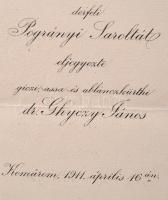 derfeli
Pogrányi Saroltát
eljegyezte
giczi, assa és ablanczkürthi
dr. Ghyczy János
Komárom, 1911. április 16-án.